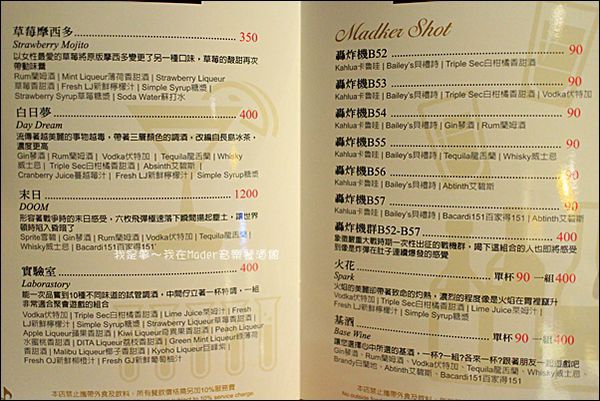 草莓摩西多 350
Strawberry Mojito
以女性最愛的草莓將原版摩西多變更了另一種口味，草莓的酸甜再次
帶動味蕾
Rum蘭姆酒 | Mint Liqueur薄荷香甜酒 | Strawberry Liqueur
草莓香甜酒 | Fresh LJ新鮮檸檬汁 | Simple Syrup糖漿 |
Strawberry Syrup草莓糖漿 | Soda Water蘇打水
白日夢 400
Day Dream
流傳著越美麗的事物越毒，帶著三層顏色的調酒，改編自長島冰茶，
濃度更高
Gin琴酒 | Rum蘭姆酒 | Vodka伏特加 | Tequila龍舌蘭 | Whisky
威士忌 | Triple Sec白柑橘香甜酒 | Absinth艾碧斯 |
Cranberry Juice蔓越莓汁 | Fresh LJ新鮮檸檬汁 | Simple Syrup糖漿
末日 1200
DOOM
形容著戰爭時的末日感受，六枚飛彈極速落下瞬間揚起塵土，讓世界
頓時陷入昏暗了
Sprite雪碧 | Gin琴酒 | Rum蘭姆酒 | Vodka伏特加 | Tequila龍舌蘭 |
Whisky威士忌 | Bacardi151百家得151
我是夢～我在Mader音樂餐酒館
實驗室 400
Laborastory
能一次品嘗到10種不同味道的試管調酒，中間佇立著一杯特調，一組
非常適合聚會遊戲的組合
Vodka伏特加 | Triple Sec白柑橘香甜酒 | Lime Juice萊姆汁 | Fresh
LJ新鮮檸檬汁 | Simple Syrup糖漿 | Strawberry Liqueur草莓香甜酒 |
Apple Liqueur蘋果香甜酒 | Kiwi Liqueur奇異果香甜酒 | Peach Liqueur
水蜜桃香甜酒 | DITA Liqueur荔枝香甜酒 | Green Mint Liqueur綠薄荷
香甜酒 | Malibu Liqueur椰子香甜酒 | Kyoho Liqueur巨峰紫 |
Fresh OJ新鮮柳橙汁 | Fresh OJ新鮮葡萄柚汁
本店禁止攜帶外食及飲料，所有餐飲價格需另加10%服務費
subject to 10% service charge.
Madker Shot
轟炸機B52 90
Kahlua卡魯哇 | Bailey's貝禮詩 | Triple Sec白柑橘香甜酒
轟炸機B53 90
Kahlua卡魯哇 | Bailey's貝禮詩 | Triple Sec白柑橘香甜酒 | Vodka伏特加
轟炸機B54 90
Kahlua卡魯哇 | Bailey's貝禮詩 | Gin琴酒 | Rum蘭姆酒
轟炸機B55 90
Kahlua卡魯哇 | Bailey's貝禮詩 | Tequila龍舌蘭 | Whisky威士忌
轟炸機B56 90
Kahlua卡魯哇 | Bailey's貝禮詩 | Abtinth艾碧斯
轟炸機B57 90
Kahlua卡魯哇 | Bailey's貝禮詩 | Bacardi151百家得151 | Abtinth艾碧斯
轟炸機群B52-B57 400
象徵嚴重大戰時期一次性出征的戰機群，喝下這組合的人也即將感受
到像是炸彈在肚子連續爆發的感覺
火花 單杯 90 一組400
Spark
火焰的美麗卻帶著致命的灼熱，濃烈的程度像是火焰在胃裡竄升
Vodka伏特加 | Triple Sec白柑橘香甜酒 | Lime Juice萊姆汁 |
Fresh LJ新鮮檸檬汁 | Simple Syrup糖漿
基酒 單杯90 一組400
Base Wine
讓您選擇心中所選的基酒，一杯?一組?各來一杯?跟著朋友一起遊戲吧
Gin琴酒、Rum蘭姆酒、Vodka伏特加、Tequila龍舌蘭、Whisky威士忌、
Brandy白蘭地、Abtinth艾碧斯、Bacardi151百家得151
本店禁止攜帶外食及飲料，
No outside food